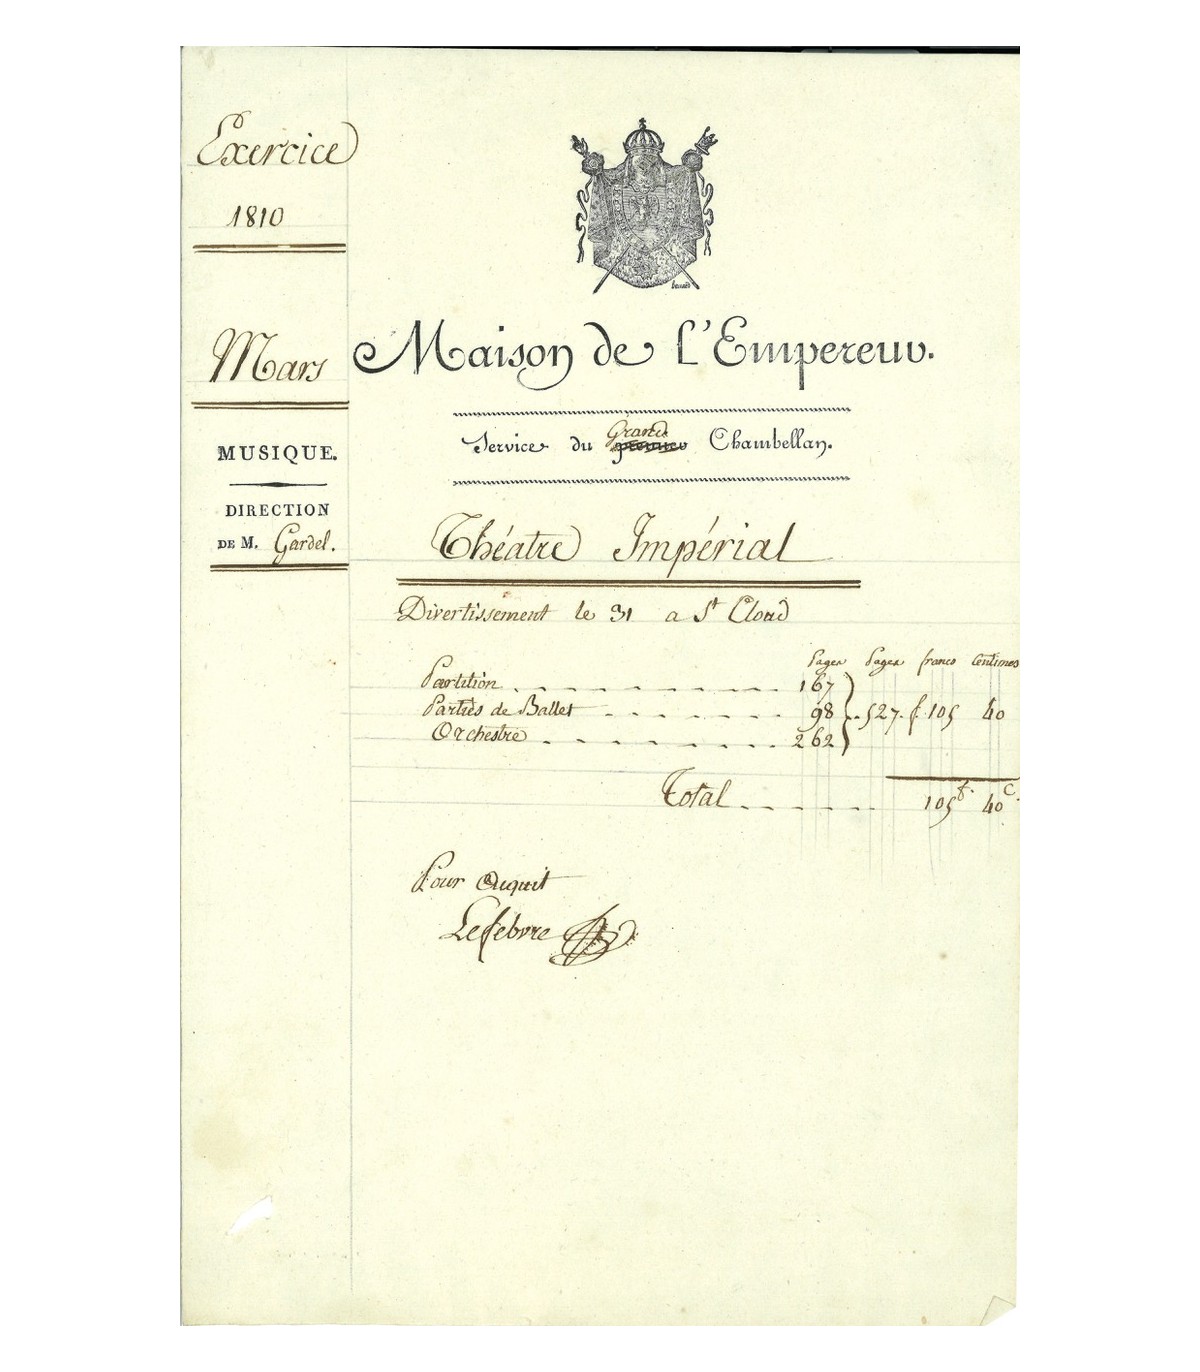 Exercice
1810
Mars
MUSIQUE.
DIRECTION
DE M. Gardel.
Maison de L'Empereur.
Grand
Service du premier Chambellan.
Théatre Impérial
Divertissement le 31 a St Cloud
Pages Pages francs Centimes
Partition 167
Parties de Ballet 98 527. f. 105 40
Orchestre 262
Total 105 f. 40 C.
Pour Acquit
Lefebvre